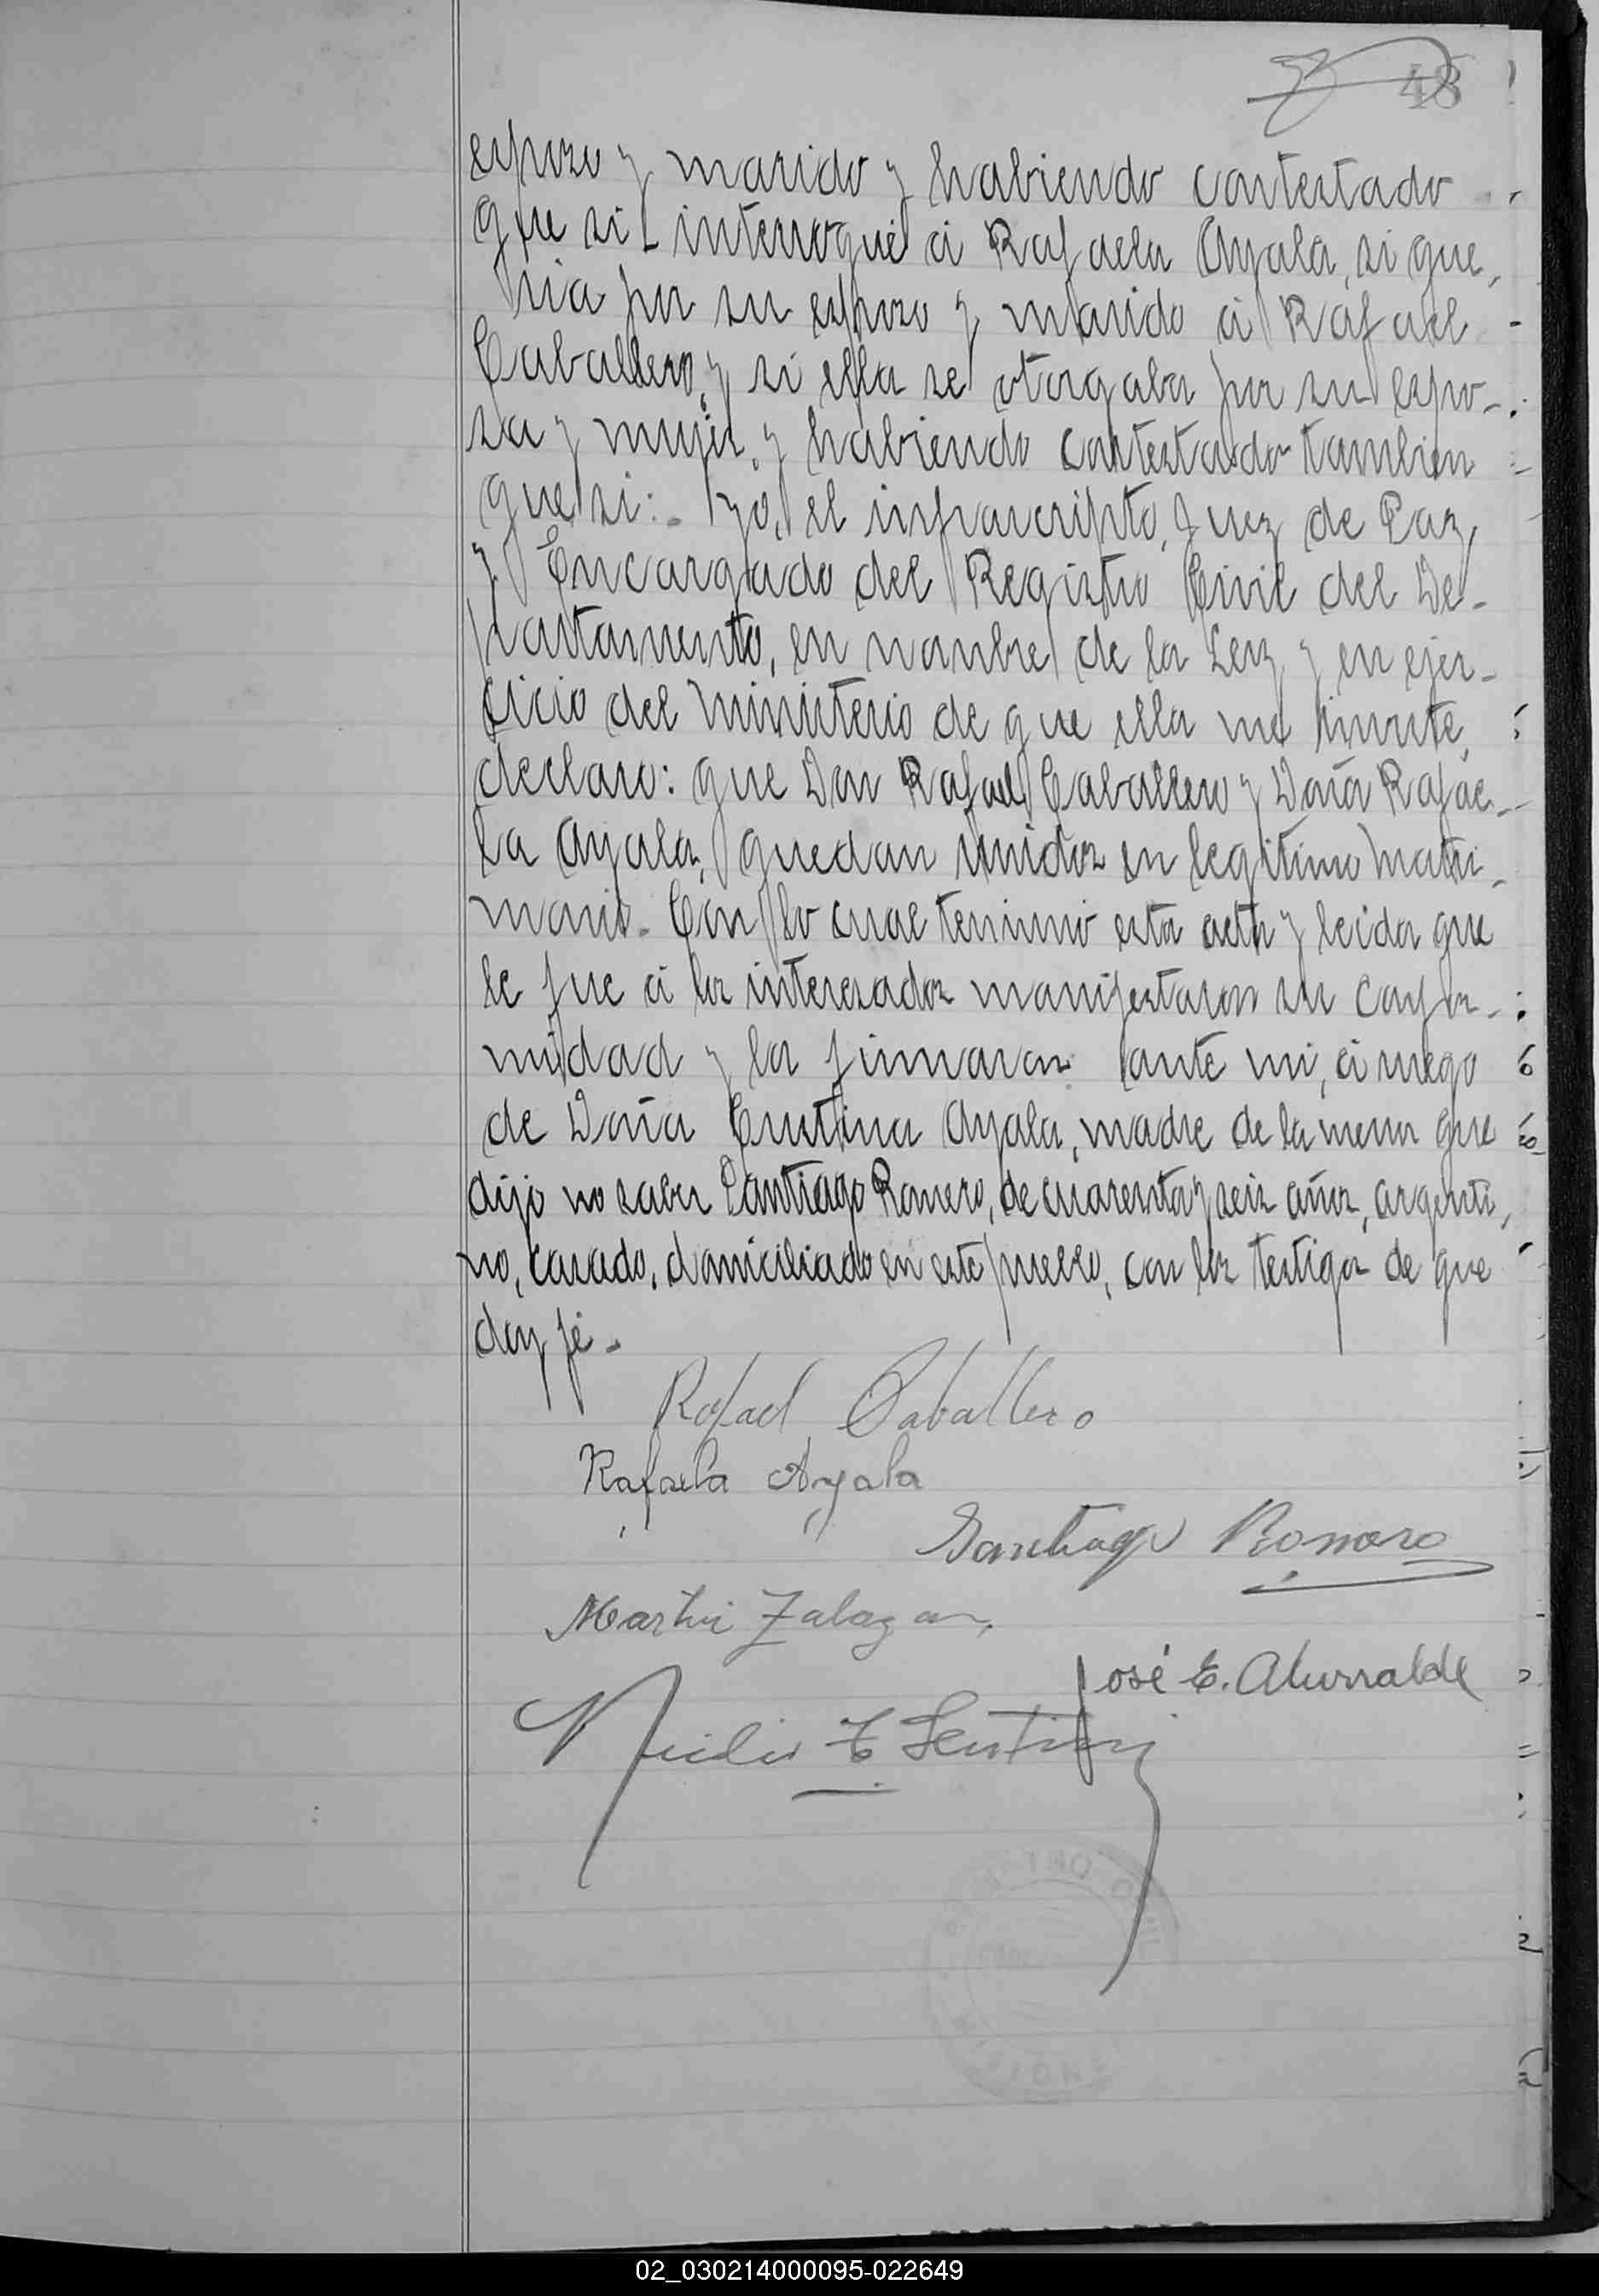 48
esposo y marido y habiendo contestado
que si interrogué á Rafaela Ayala, si que,
ria por su esposo y marido á Rafael
Caballero, y si ella se otorgaba por su espo-
sa y mujer, y habiendo contestado tambien
que si:- Yo, el infrascripto, Juez de Paz,
y Encargado del Registro Civil del De-
partamento, en nombre de la Ley y en ejer-
cicio del ministerio de que ella me inviste,
declaro: que Don Rafael Caballero y Doña Rafae-
la Ayala, quedan unidos en legitimo matri-
monio. Con lo cual terminó esta acta y leida que
le fue á los interesados manifestaron su confor-
midad y la firmaron ante mi, á ruego
de Doña Cristina Ayala, madre de la menor que
dijo no saber Santiago Romero, de cuarenta y seis años, argenti,
no, casado, domiciliado en este pueblo, con los testigos de que
doy fé.
Rafael Caballero
Rafaela Ayala
Santiago Romero
Martin Zalazar
José E. Aturralde
02_030214000095-022649